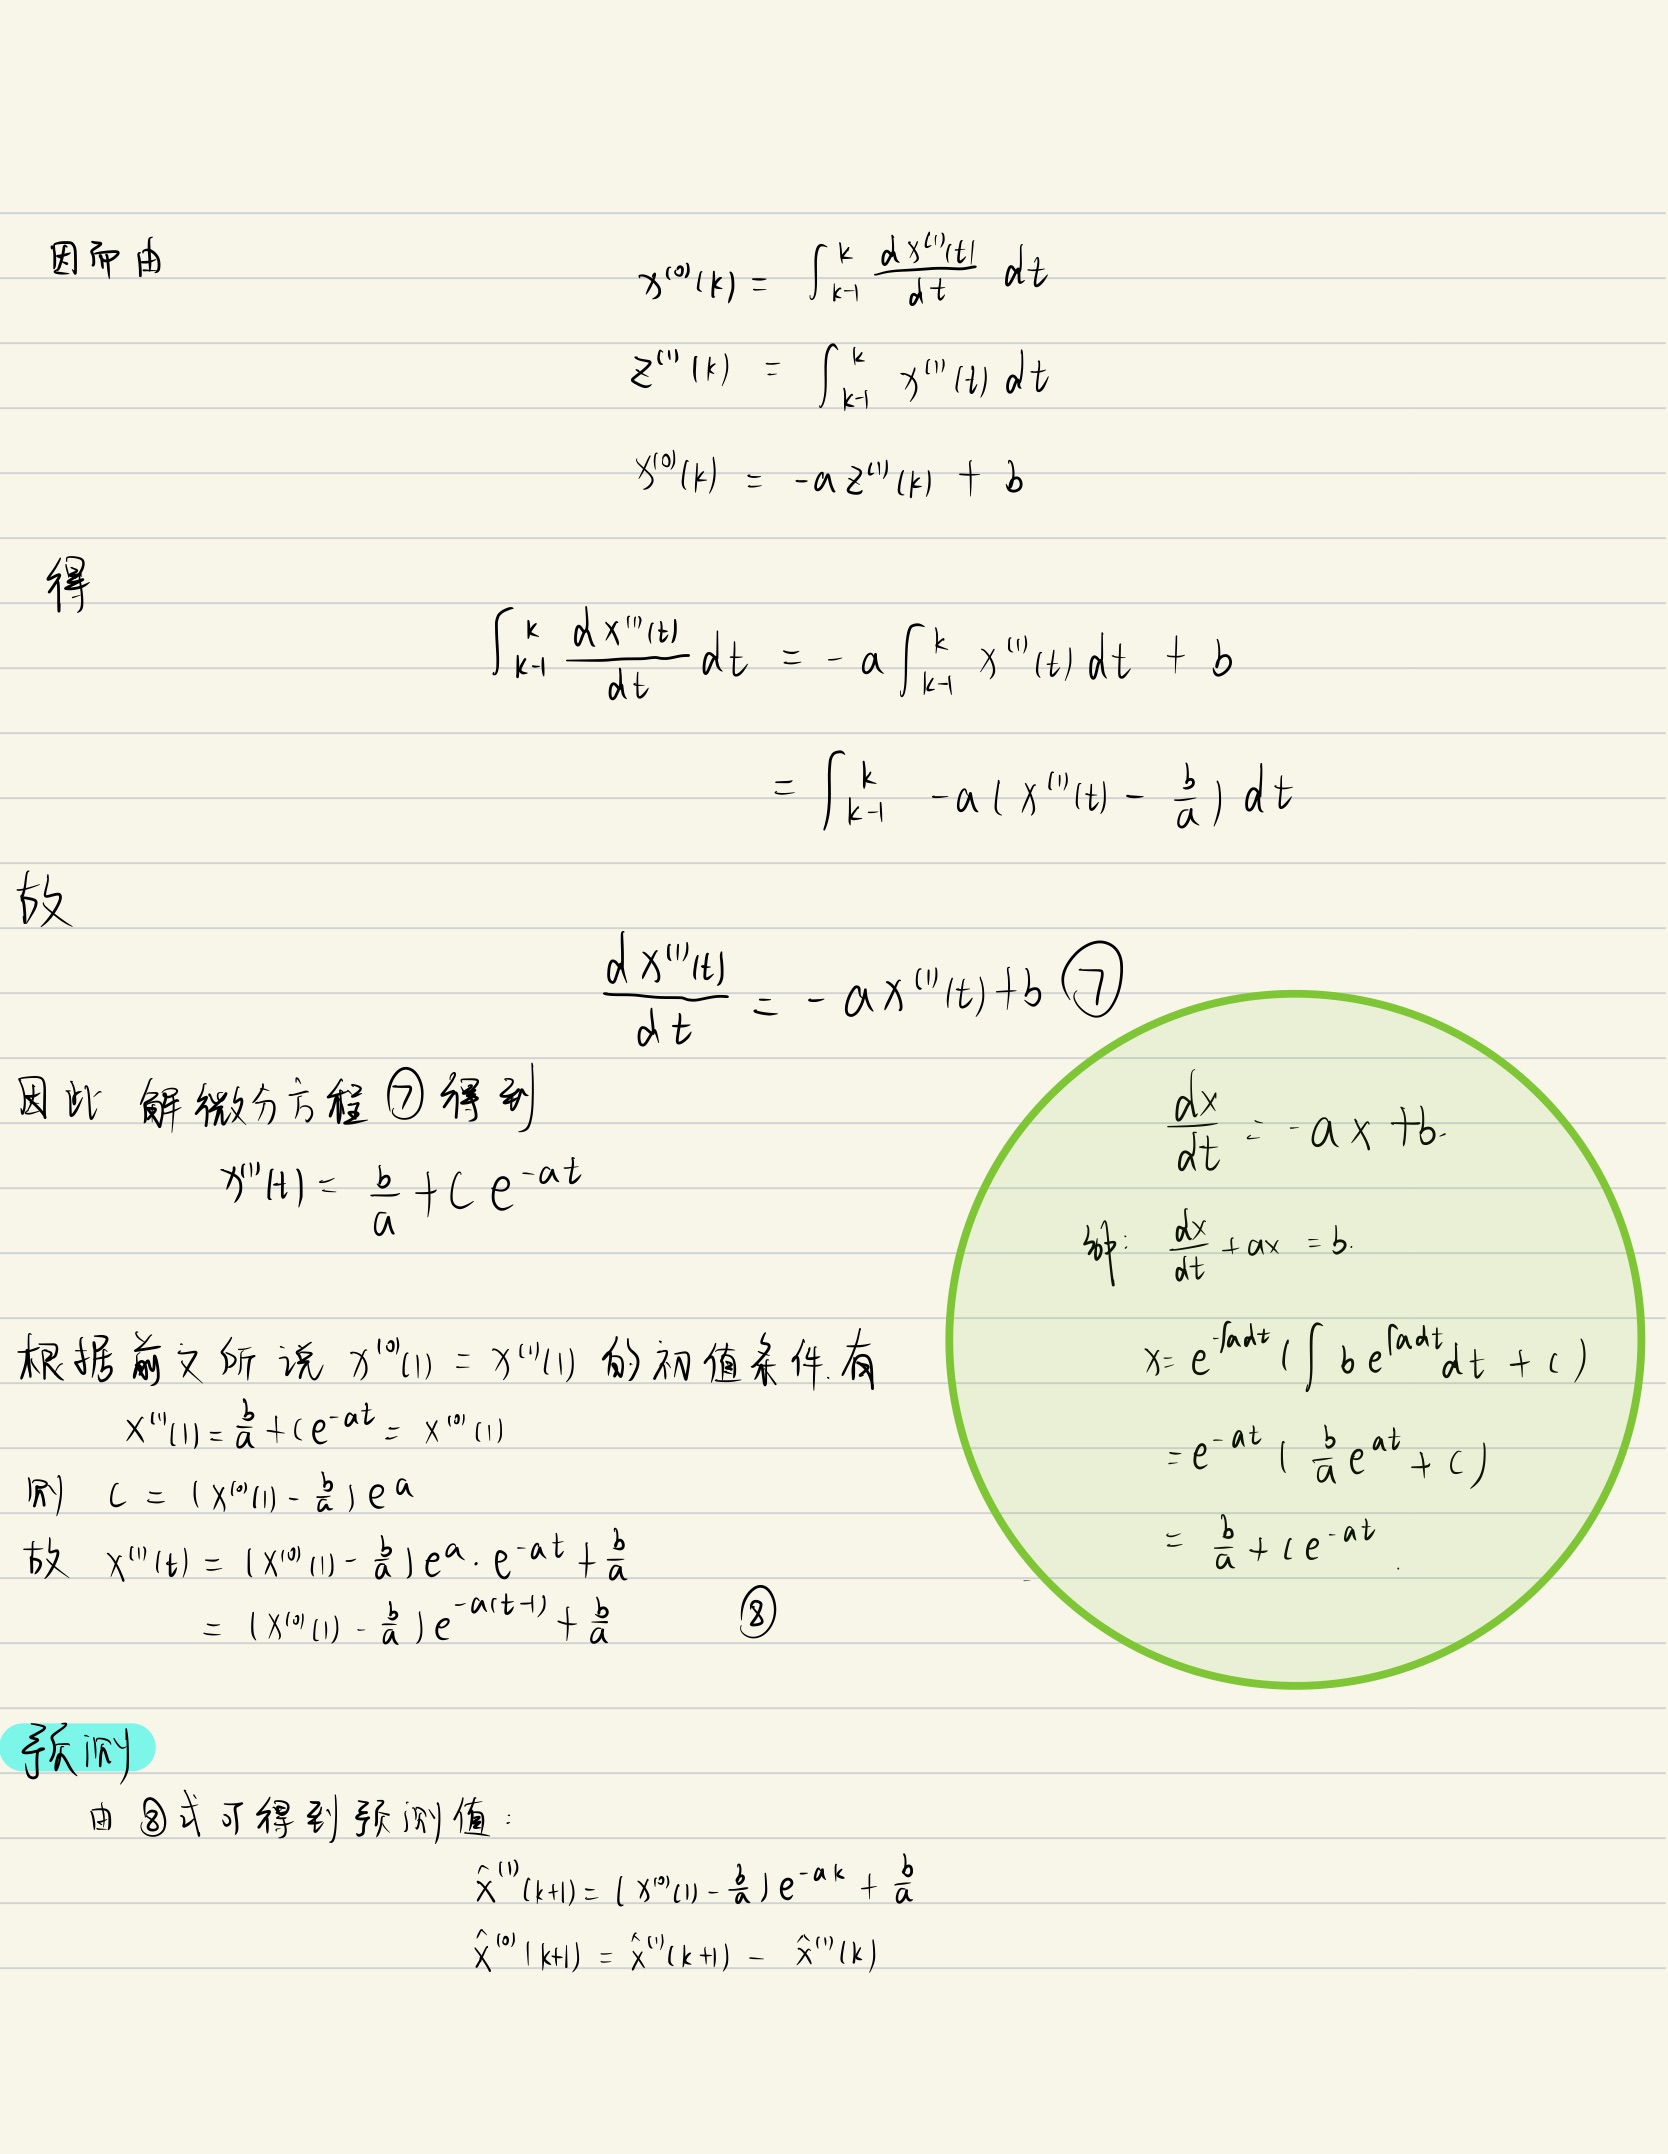 因而由
x⁽⁰⁾(k) = ∫ₖ₋₁ᵏ dx⁽¹⁾(t)/dt dt
z⁽¹⁾(k) = ∫ₖ₋₁ᵏ x⁽¹⁾(t) dt
x⁽⁰⁾(k) = -a z⁽¹⁾(k) + b
得
∫ₖ₋₁ᵏ dx⁽¹⁾(t)/dt dt = -a ∫ₖ₋₁ᵏ x⁽¹⁾(t) dt + b
= ∫ₖ₋₁ᵏ -a(x⁽¹⁾(t) - b/a) dt
故
dx⁽¹⁾(t)/dt = -ax⁽¹⁾(t)+b ⑦
因此 解微分方程⑦得到
x⁽¹⁾(t) = b/a + C e^(-at)
根据前文所说 x⁽⁰⁾(1) = x⁽¹⁾(1) 的初值条件.有
x⁽¹⁾(1) = b/a + C e^(-at) = x⁽⁰⁾(1)
则 C = (x⁽⁰⁾(1) - b/a) e^a
故 x⁽¹⁾(t) = (x⁽⁰⁾(1) - b/a) e^a · e^(-at) + b/a
= (x⁽⁰⁾(1) - b/a) e^(-a(t-1)) + b/a ⑧
dx/dt = -ax+b.
解: dx/dt + ax = b.
x = e^(-∫adt) (∫ b e^(∫adt) dt + C)
= e^(-at) (b/a e^(at) + C)
= b/a + C e^(-at).
预测
由⑧式可得到预测值:
x̂⁽¹⁾(k+1) = (x⁽⁰⁾(1) - b/a) e^(-ak) + b/a
x̂⁽⁰⁾(k+1) = x̂⁽¹⁾(k+1) - x̂⁽¹⁾(k)